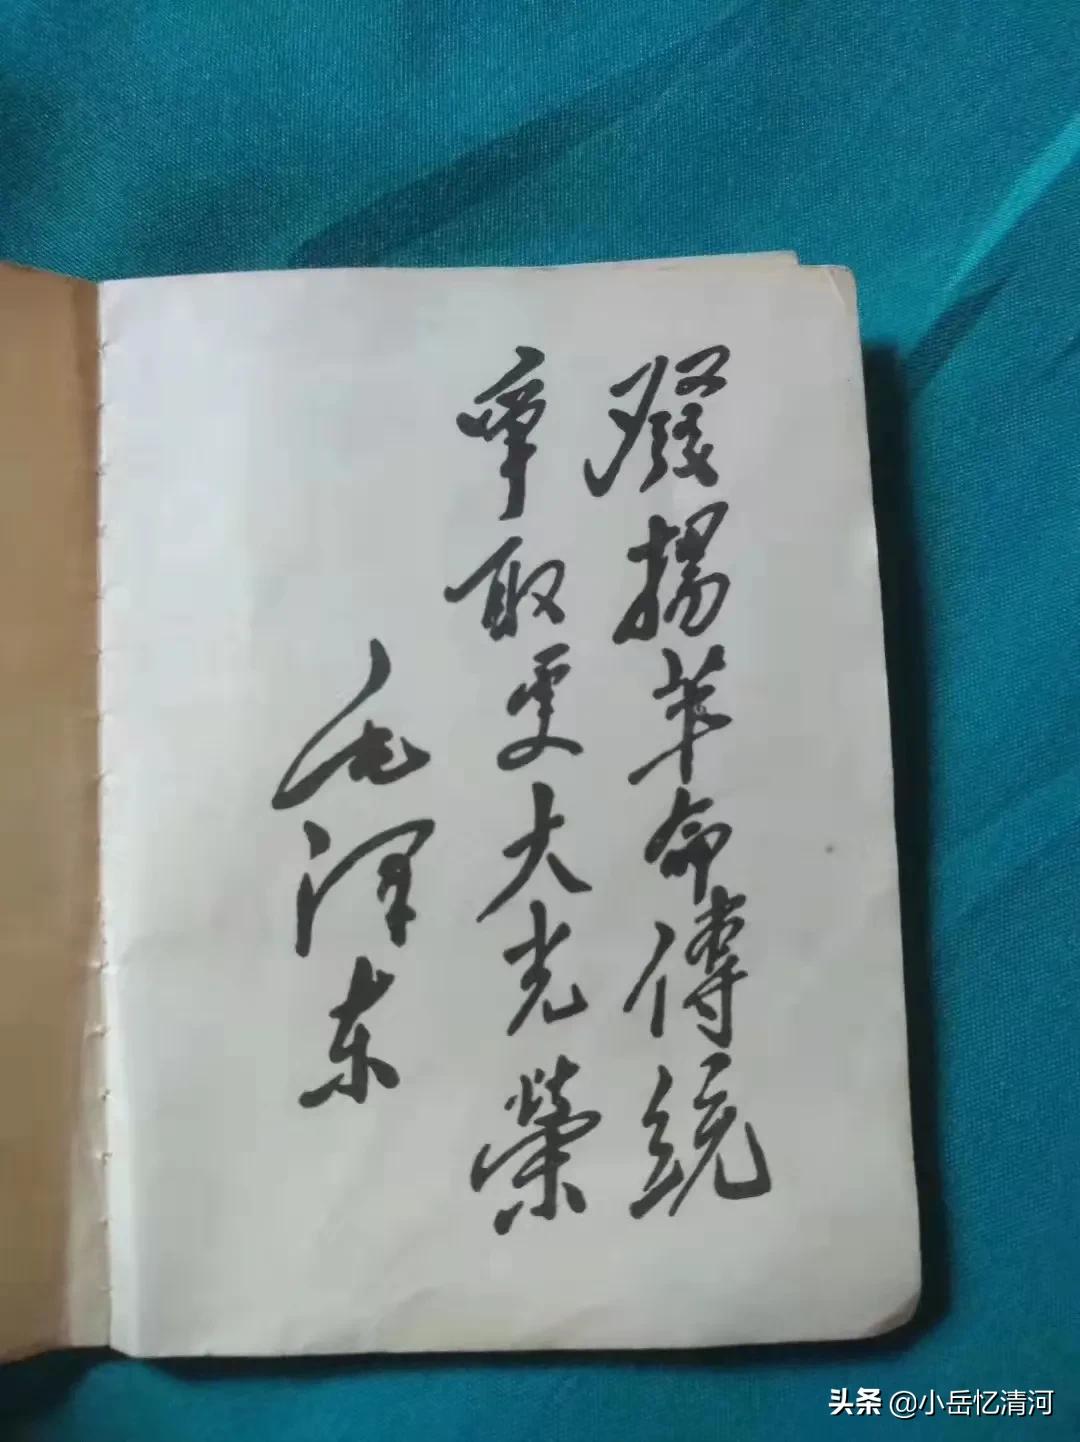 發揚革命傳統
爭取更大光榮
毛泽东
头条 @小岳忆清河